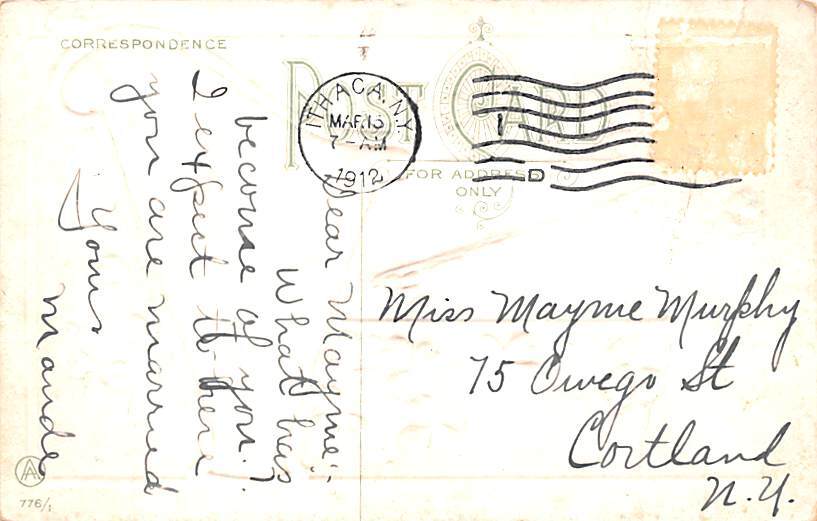 CORRESPONDENCE
POST CARD
FOR ADDRESS
ONLY
ITHACA, N.Y.
MAR 13
7-AM
1912
D
Dear Mayme:-
What has
become of you?
I expect to hear
you are married
Yours
Maude
Miss Mayme Murphy
75 Owego St
Cortland
N.Y.
AA
776/1